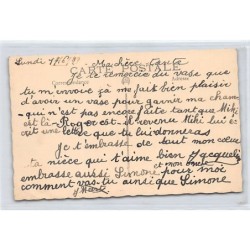 Lundi
Ma chère Tante
CARTE POSTALE
Correspondance
Adresse
Je te remercie du vase que
tu m'envoie ça me fait bien plaisir
d'avoir un vase pour garnir ma cham
- qui n'est pas encore faite tant que Mik
est là - Roger est-il revenu Miki lui é-
crit une lettre que tu lui donneras
Je t'embrasse de tout mon cœur
ta nièce qui t'aime bien Jacquelin
et mon oncle
embrasse aussi Simone pour moi
comment vas-tu ainsi que Simone